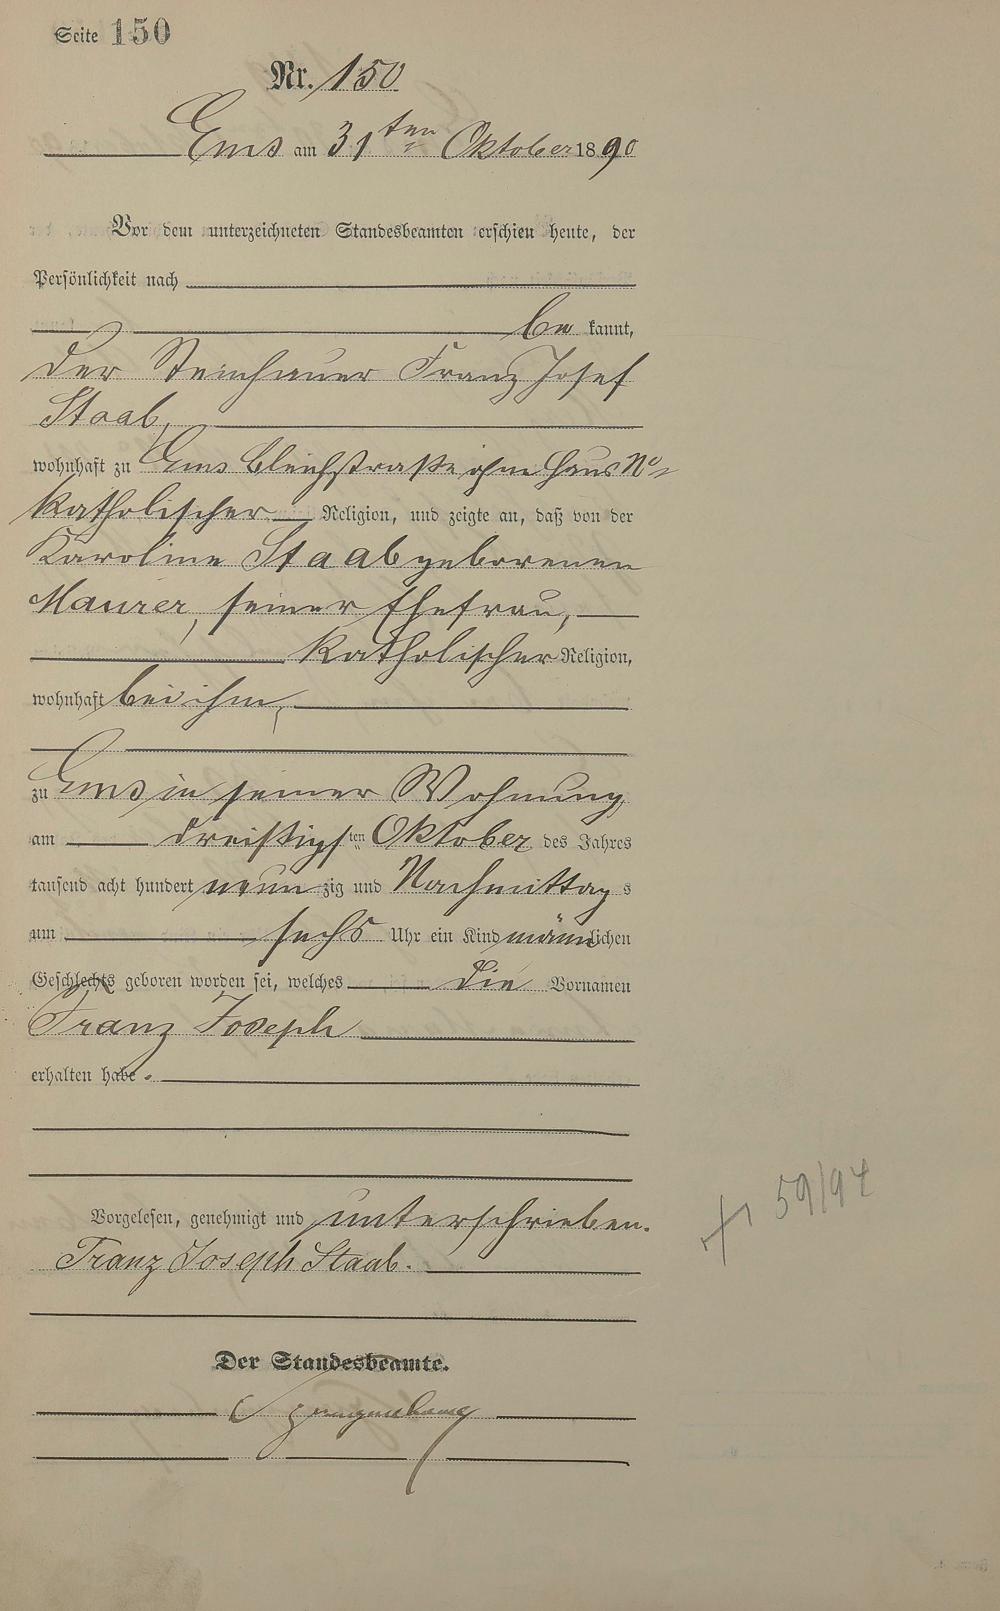 Seite 150
Nr. 150
Ems am 31ten Oktober 1890
Vor dem unterzeichneten Standesbeamten erschien heute, der
Persönlichkeit nach
be kannt,
der Steinhauer Franz Josef
Staab,
wohnhaft zu Ems Bleichstraße ohne Haus No
katholischer Religion, und zeigte an, daß von der
Karoline Staab geborenen
Maurer, seiner Ehefrau,
katholischer Religion,
wohnhaft bei ihm,
zu Ems in seiner Wohnung
am dreißigsten Oktober des Jahres
tausend acht hundert neunzig und Nachmittags
um sechs Uhr ein Kind männlichen
Geschlechts geboren worden sei, welches die Vornamen
Franz Joseph
erhalten habe.
Vorgelesen, genehmigt und unterschrieben.
Franz Joseph Staab.
Der Standesbeamte.
+ 59/94